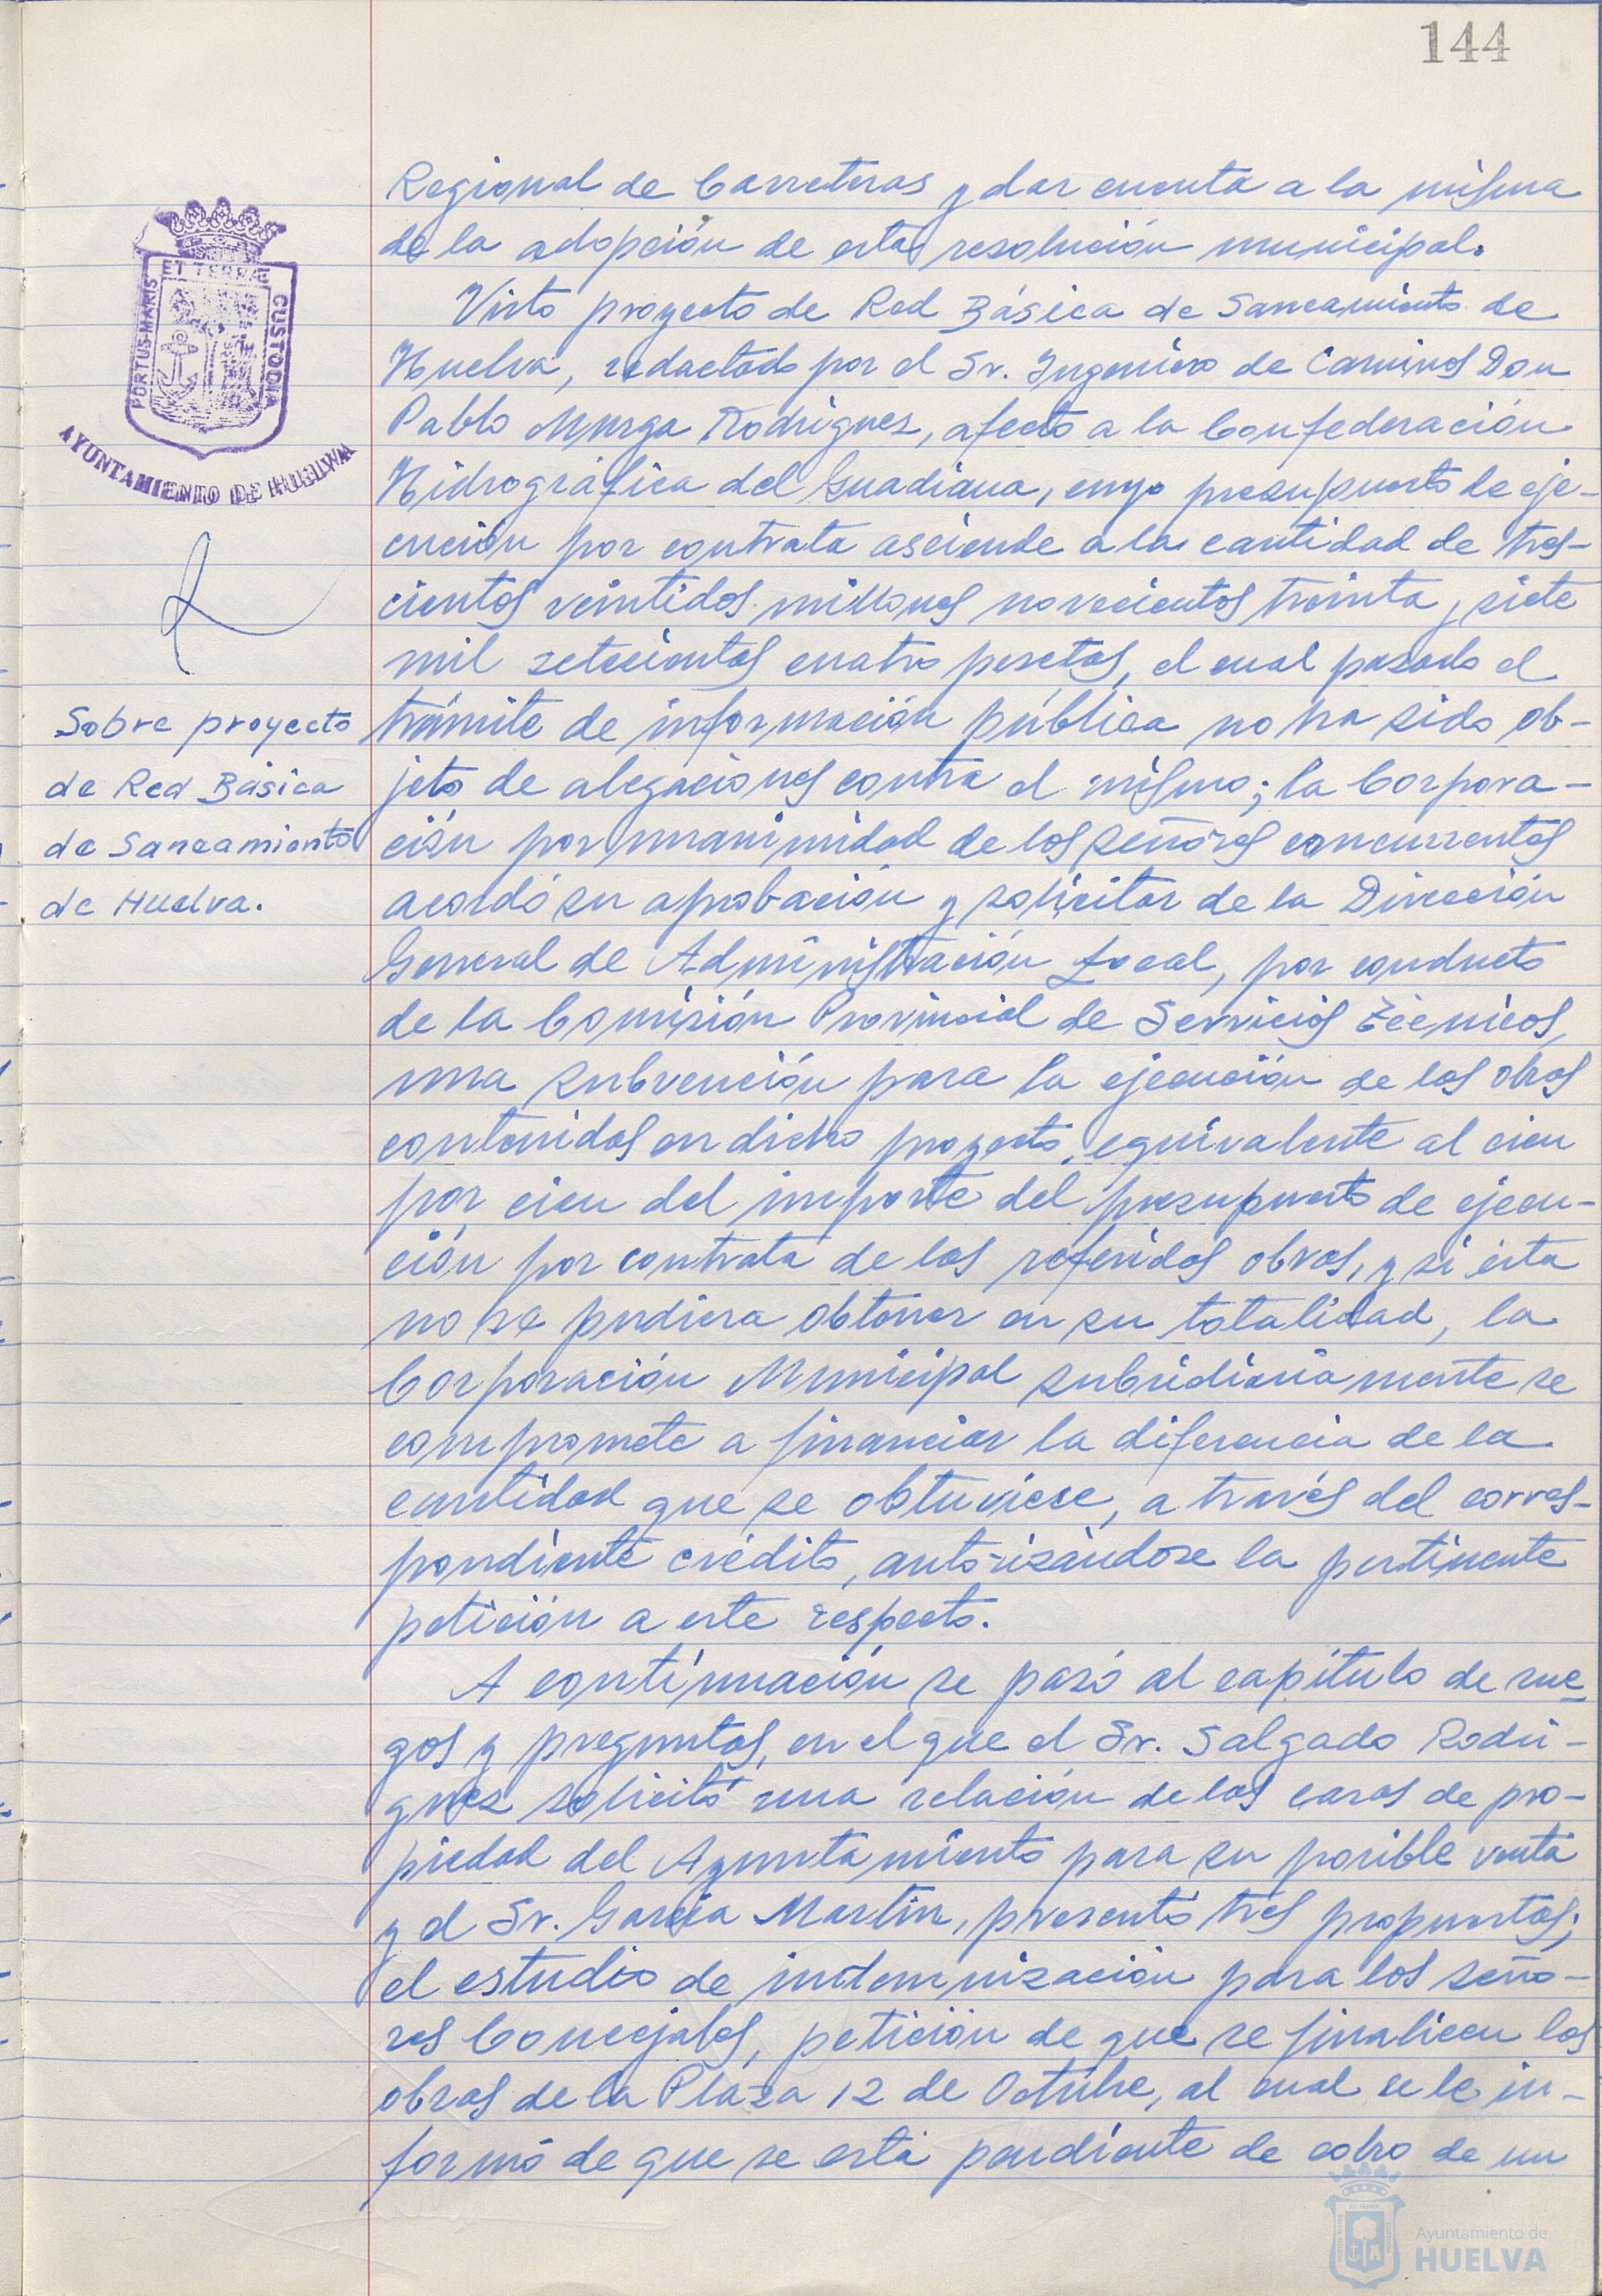 144
Regional de Carreteras y dar cuenta a la misma
de la adopción de esta resolución municipal.
Visto proyecto de Red Básica de Saneamiento de
Huelva, redactado por el Sr. Ingeniero de Caminos Don
Pablo Murga Rodríguez, afecto a la Confederación
Hidrográfica del Guadiana, cuyo presupuesto de eje-
cución por contrata asciende a la cantidad de tres-
cientos veintidos millones novecientos treinta y siete
mil setecientas cuatro pesetas, el cual pasado el
trámite de información pública no ha sido ob-
jeto de alegaciones contra el mismo; la Corpora-
ción por unanimidad de los señores concurrentes
acordó su aprobación y solicitar de la Dirección
General de Administración Local, por conducto
de la Comisión Provincial de Servicios Técnicos,
una subvención para la ejecución de las obras
contenidas en dicho proyecto, equivalente al cien
por cien del importe del presupuesto de ejecu-
ción por contrata de las referidas obras, y si ésta
no se pudiera obtener en su totalidad, la
Corporación Municipal subsidiariamente se
compromete a financiar la diferencia de la
cantidad que se obtuviese, a través del corres-
pondiente crédito, autorizándose la pertinente
petición a este respecto.
A continuación se pasó al capítulo de rue-
gos y preguntas, en el que el Sr. Salgado Rodrí-
guez solicitó una relación de las casas de pro-
piedad del Ayuntamiento para su posible venta
y el Sr. García Martín, presentó tres propuestas;
el estudio de indemnización para los seño-
res Concejales, petición de que se finalicen las
obras de la Plaza 12 de Octubre, al cual se le in-
formó de que se está pendiente de cobro de un
PORTUS MARIS ET TERRÆ CUSTODIA
AYUNTAMIENTO DE HUELVA
Sobre proyecto
de Red Básica
de Saneamiento
de Huelva.
Ayuntamiento de
HUELVA